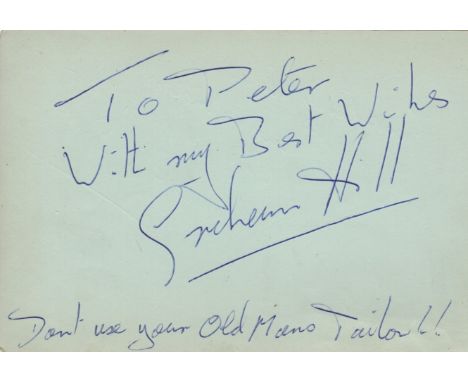 To Peter
With my Best Wishes
Graham Hill
Dont use your Old Mans Tailor!!